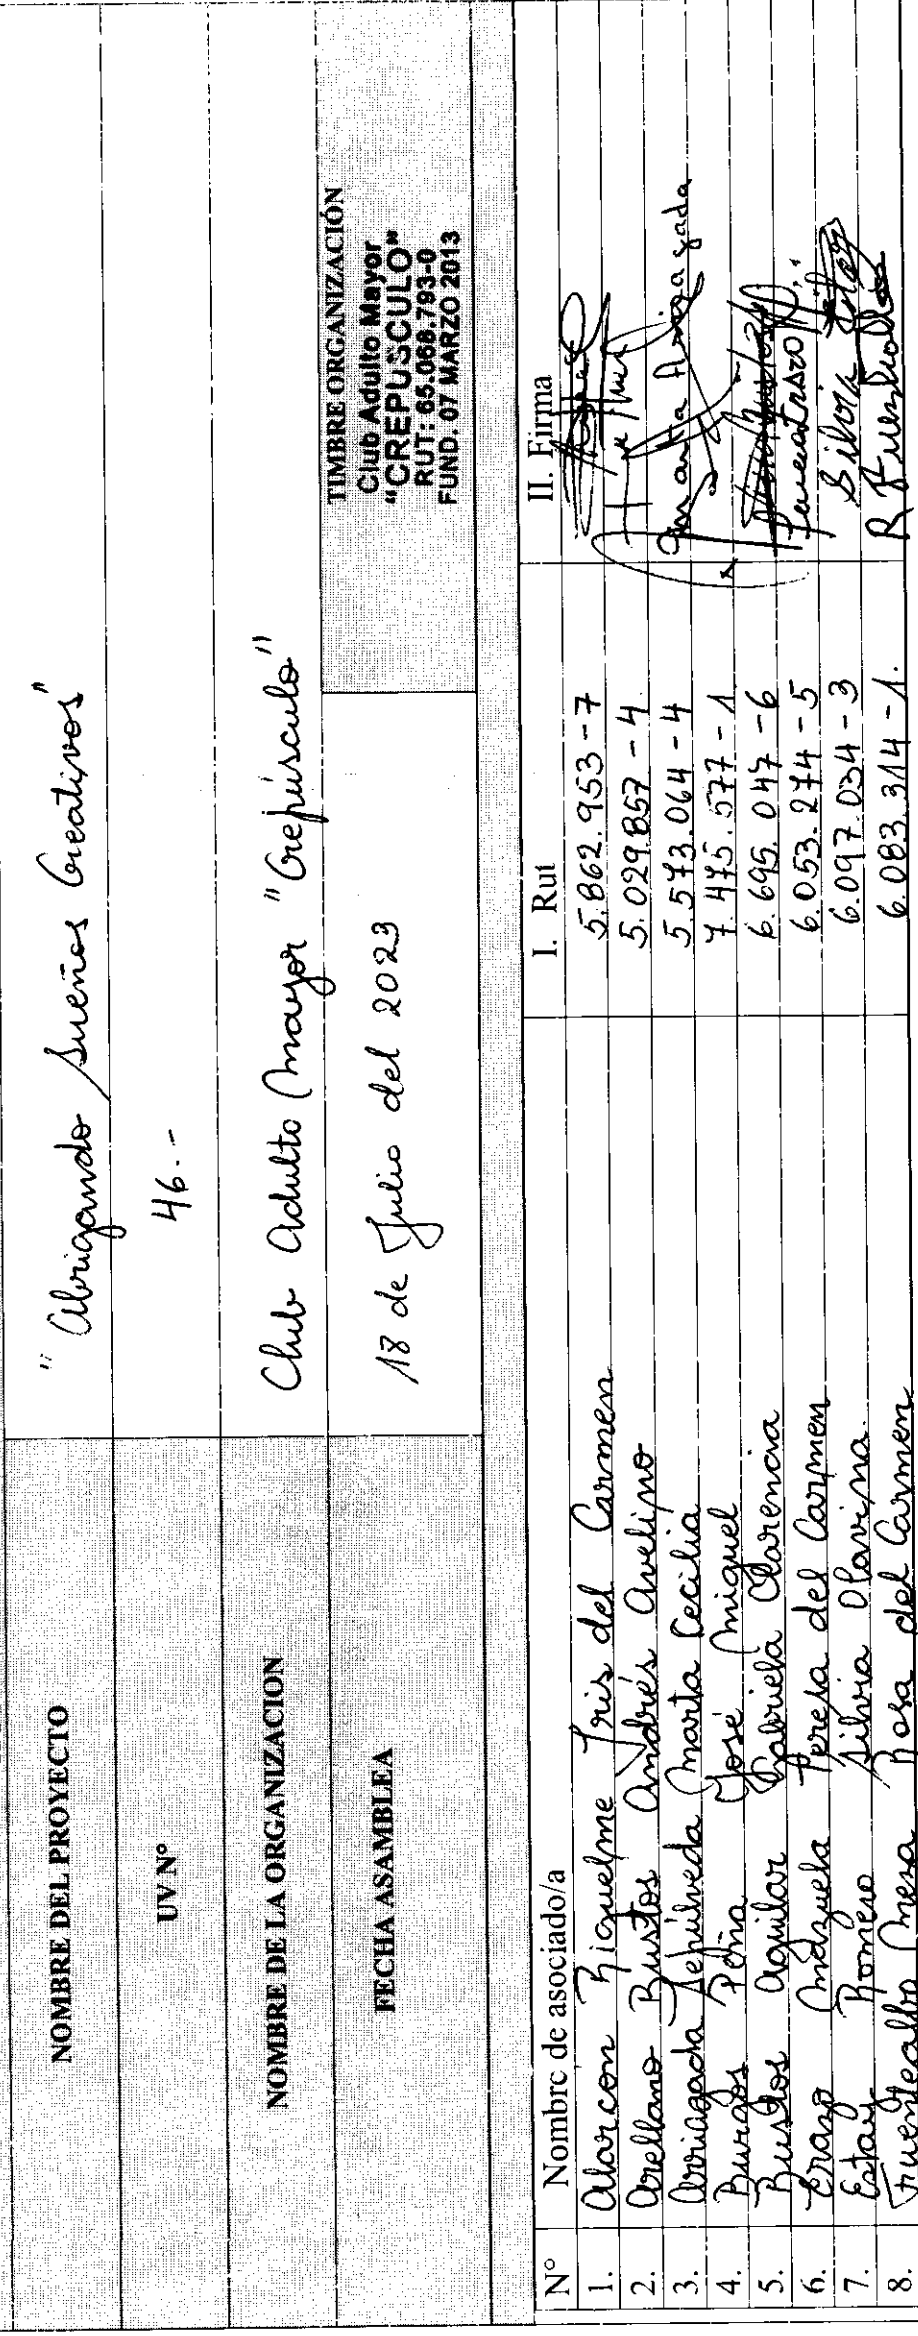 NOMBRE DEL PROYECTO "Abrigando Sueños Creativos"
UV N° 46.-
NOMBRE DE LA ORGANIZACION Club Adulto Mayor "Crepúsculo"
FECHA ASAMBLEA 18 de Julio del 2023
TIMBRE ORGANIZACIÓN
Club Adulto Mayor
"CREPUSCULO"
RUT: 65.068.793-0
FUND. 07 MARZO 2013
N° Nombre de asociado/a I. Rut II. Firma
1. Alarcon Riquelme Iris del Carmen 5.862.953-7
2. Arellano Bustos Andrés Avelino 5.029857-4
3. Arriagada Sepúlveda Marta Cecilia 5.573.064-4 Marta Arriagada
4. Burgos Peña José Miguel 7.475.577-1
5. Bustos Aguilar Gabriela Clarencia 6.695.047-6
6. Erazo Mazuela Teresa del Carmen 6.053.274-5
7. Estay Romero Silvia Olavina 6.097.034-3 Silvia Estay
8. Fuentealba Mesa Rosa del Carmen 6.083.314-1.